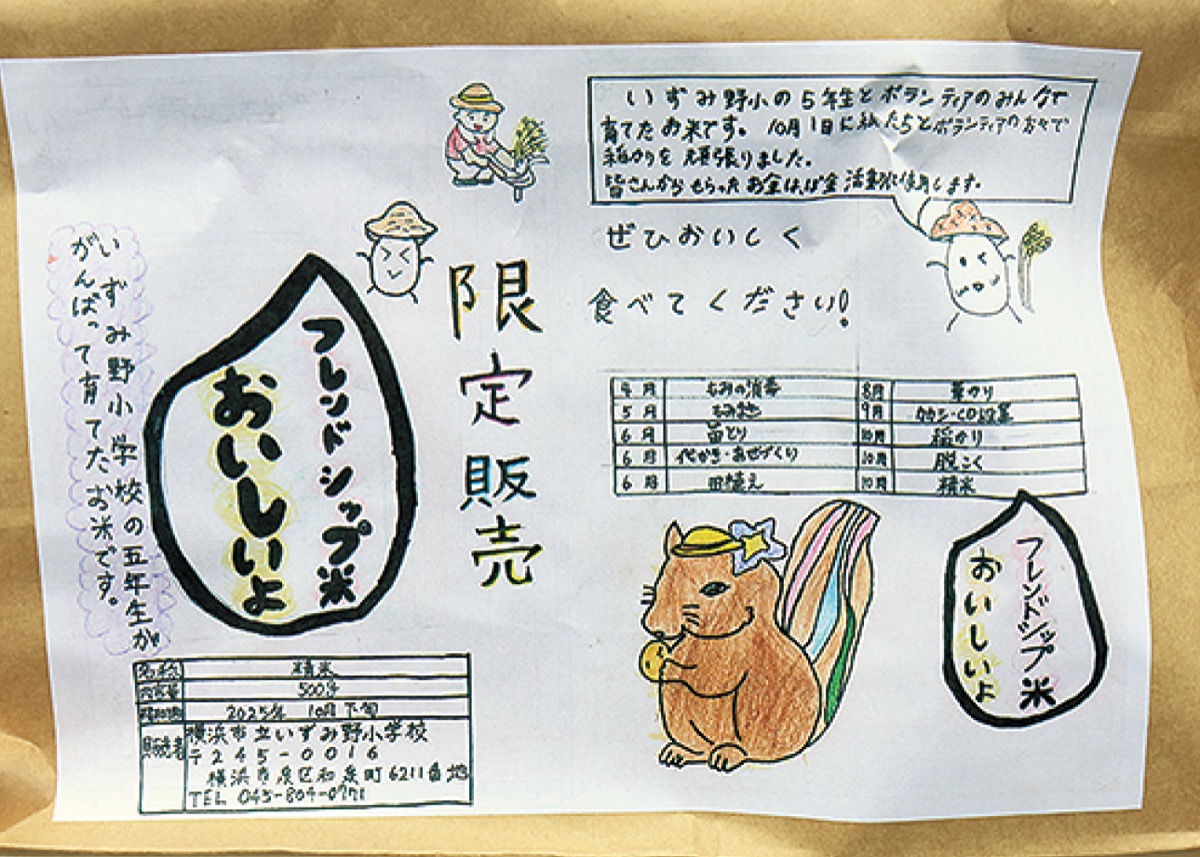 いずみ野小学校の五年生が
がんばって育てたお米です。
フレンドシップ米
おいしいよ
限定販売
名称 精米
内容量 500g
2025年 10月下旬
販売者 横浜市立いずみ野小学校
〒245-0016
横浜市泉区和泉町6211番地
TEL 045-804-0771
いずみ野小の5年生とボランティアのみんなで
育てたお米です。 10月1日に私たちとボランティアの方々で
稲かりを頑張りました。
皆さんからもらったお金はぼ金活動に使用します。
ぜひおいしく
食べてください!
4月 もみの消毒 8月 草かり
5月 もみ地 9月 かかし・CD設置
6月 苗とり 10月 稲かり
6月 代かき・あぜづくり 10月 脱こく
6月 田植え 10月 精米
フレンドシップ米
おいしいよ